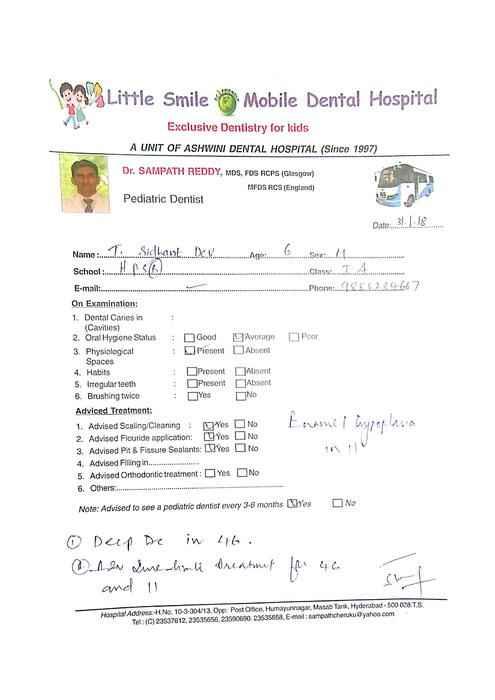 Little Smile Mobile Dental Hospital
Exclusive Dentistry for kids
A UNIT OF ASHWINI DENTAL HOSPITAL (Since 1997)
Dr. SAMPATH REDDY, MDS, FDS RCPS (Glasgow)
MFDS RCS (England)
Pediatric Dentist
Date: 31.1.18
Name: T. Sidhant Dev Age: 6 Sex: M
School: HPS(R) Class: I A
E-mail: Phone:
On Examination:
1. Dental Caries in :
(Cavities)
2. Oral Hygiene Status : Good Average Poor
3. Physiological : Present Absent
Spaces
4. Habits : Present Absent
5. Irregular teeth : Present Absent
6. Brushing twice : Yes No
Adviced Treatment:
1. Advised Scaling/Cleaning : Yes No
2. Advised Flouride application: Yes No
3. Advised Pit & Fissure Sealants: Yes No
4. Advised Filling in
5. Advised Orthodontic treatment : Yes No
6. Others:
Enamel hypoplasia
in 11
Note: Advised to see a pediatric dentist every 3-6 months Yes No
① Deep Dc in 46.
② Adv treatment for 46
and 11
Hospital Address:-H.No. 10-3-304/13, Opp: Post Office, Humayunnagar, Masab Tank, Hyderabad - 500 028.T.S.
Tel : (C) 23537612, 23535656, 23590690. 23535858, E-mail : sampathcheruku@yahoo.com